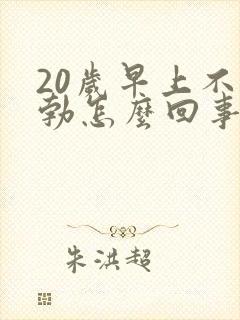 20歲早上不
勃怎麼回事
朱洪超